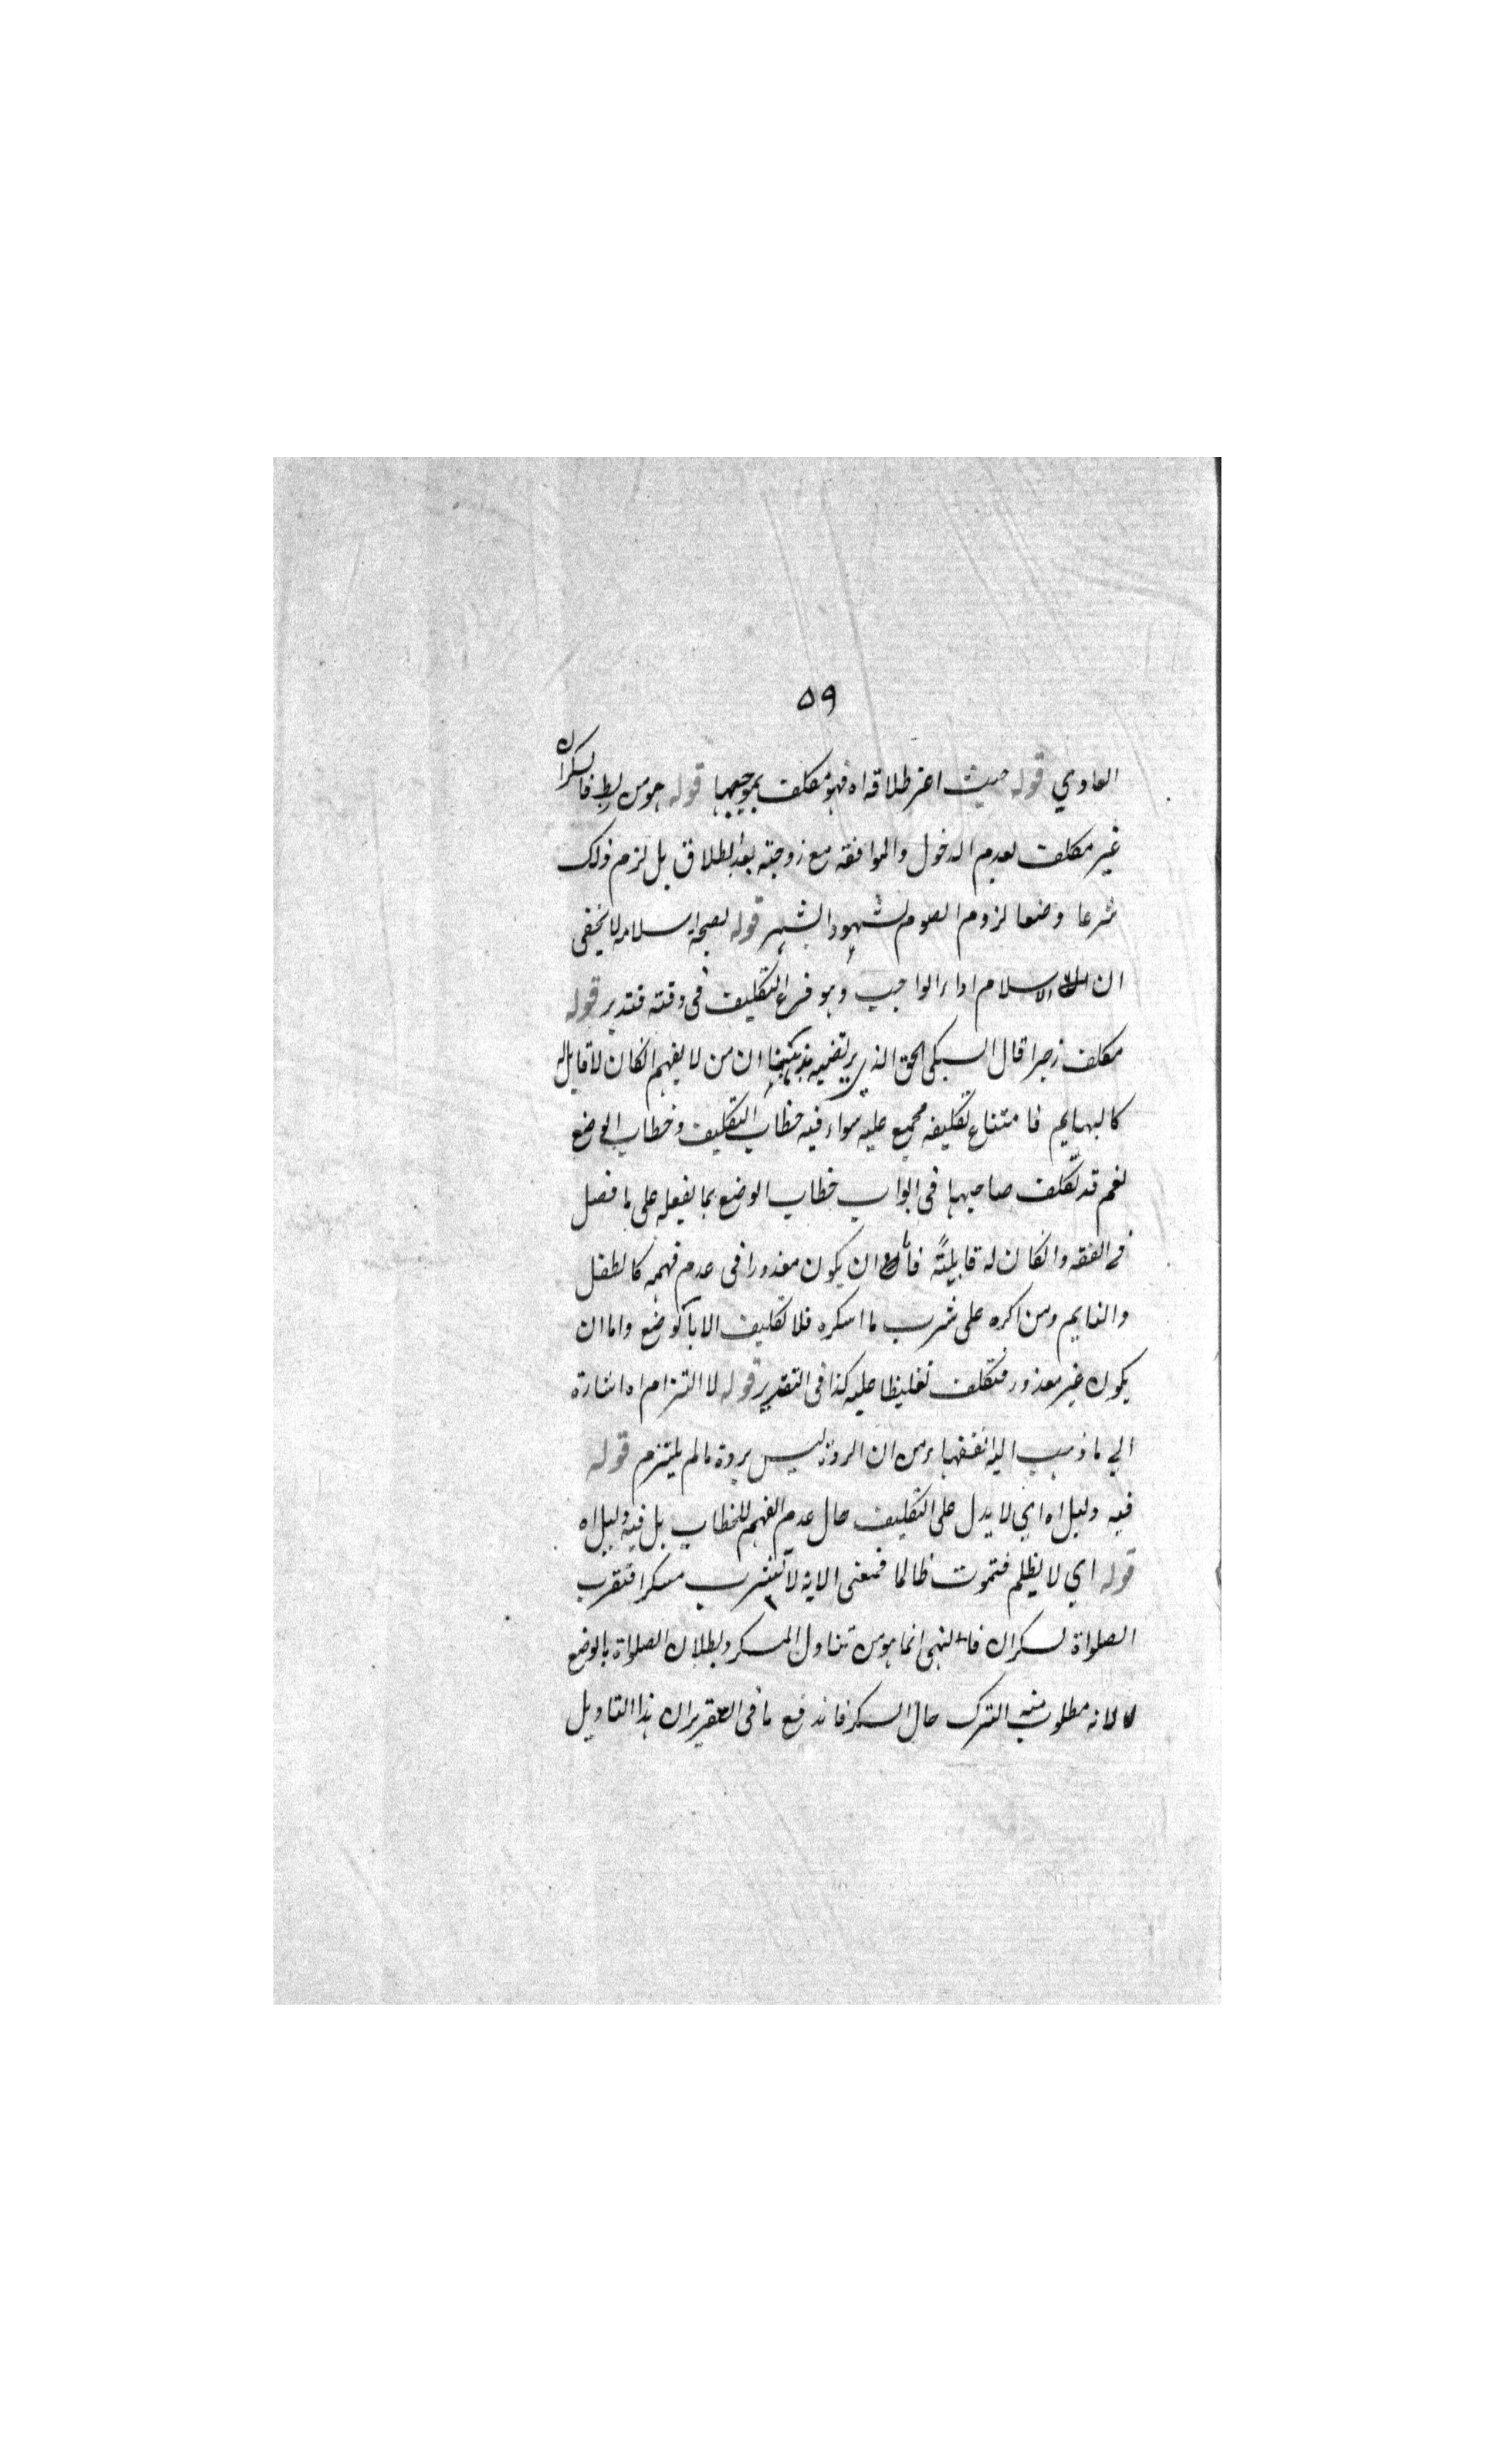 ٥٩
العادي قوله حيث اعتبر طلاقه اه فهو مكلف بموجبها قوله هو من ربط فالسكران
غير مكلف لعدم الدخول والموافقه مع زوجته بعد الطلاق بل لزم ذلك
شرعا وضعا لزوم الصوم لشهود الشهر قوله لصحة اسلامه لا يخفى
ان الاسلام اداء الواجب وهو فرع التكليف في وقته فتدبر قوله
مكلف زجرا قال السبكي الحق الذي يرتضيه مذهبنا ان من لا يفهم انكان لا قابل له
كالبهايم فامتناع تكليفه مجمع عليه سواء فيه خطاب التكليف وخطاب الوضع
نعم قد تكلف صاحبها في ابواب خطاب الوضع بما يفعله على ما فصل
في الفقه وانكان له قابلية فاما ان يكون معذورا في عدم فهمه كالطفل
والنايم ومن اكره على شرب ما اسكره فلا تكليف الا بالوضع واما ان
يكون غير معذور فتكلف تغليظا عليه كذا في التقدير قوله لا التزام اه اشارة
الي ما ذهب اليه الفقهاء من ان الردة ليس بردة مالم يلتزم قوله
فيه دليل اه اي لا يدل على التكليف حال عدم الفهم للخطاب بل فيه دليل اه
قوله اي لا يظلم فتموت ظالما فمعنى الايه لا تشرب مسكرا فتقرب
الصلواة لسكران فالنهي انما هو من تناول المسكر وبطلان الصلواة بالوضع
لا لانه مطلوب منه الترك حال السكر فاندفع ما في التقرير ان هذا التاويل